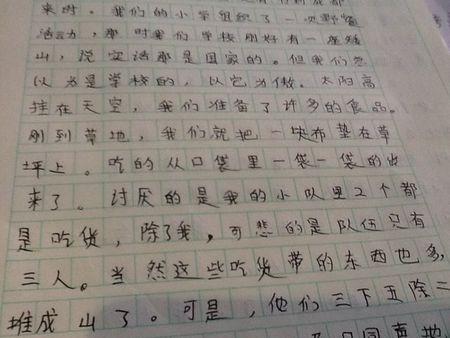 来时。我们的小学组织了一次野炊
活动，那时我们学校刚好有一座矮
山，说实话那是国家的。但我们总
以为是学校的，以它为傲。太阳高
挂在天空，我们准备了许多的食品。
刚到草地，我们就把一块布垫在草
坪上。吃的从口袋里一袋一袋的出
来了。讨厌的是我的小队里2个都
是吃货，除了我，可悲的是队伍只有
三人。当然这些吃货带的东西也多，
堆成山了。可是，他们三下五除二